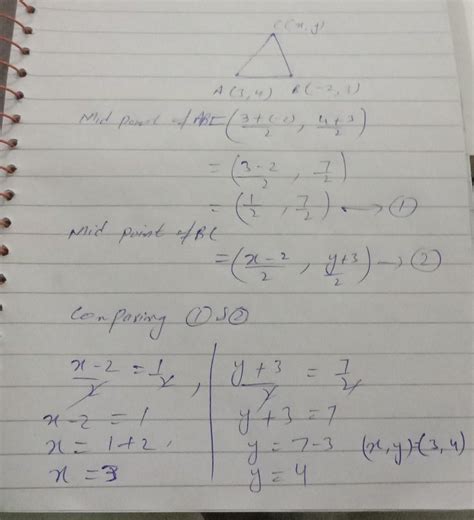 C(x,y)
A(3,4) B(-2,3)
Mid point of AB = (3+(-2)/2 , 4+3/2)
= (3-2/2 , 7/2)
= (1/2 , 7/2) → ①
Mid point of BC
= (x-2/2 , y+3/2) → ②
Comparing ① & ②
x-2/2 = 1/2 , y+3/2 = 7/2
x-2 = 1 y+3 = 7
x = 1+2 , y = 7-3 (x,y)=(3,4)
x = 3 y = 4